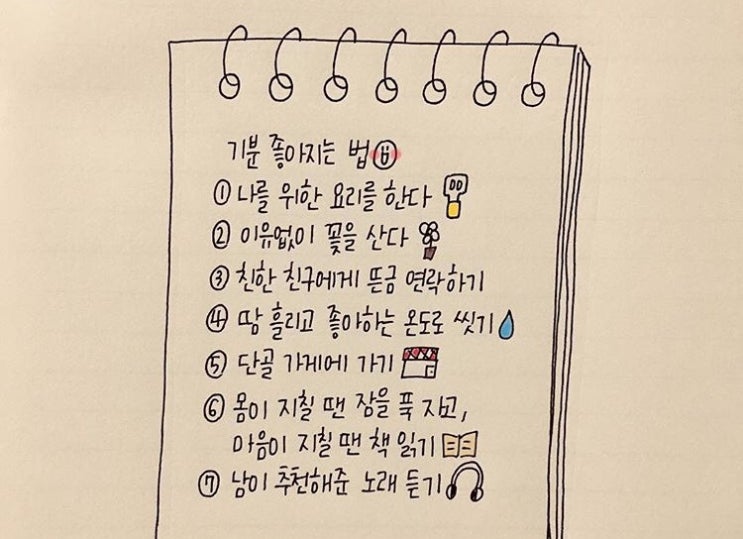 기분 좋아지는 법
① 나를 위한 요리를 한다
② 이유없이 꽃을 산다
③ 친한 친구에게 뜬금 연락하기
④ 땀 흘리고 좋아하는 온도로 씻기
⑤ 단골 가게에 가기
⑥ 몸이 지칠 땐 잠을 푹 자고,
마음이 지칠 땐 책 읽기
⑦ 남이 추천해준 노래 듣기